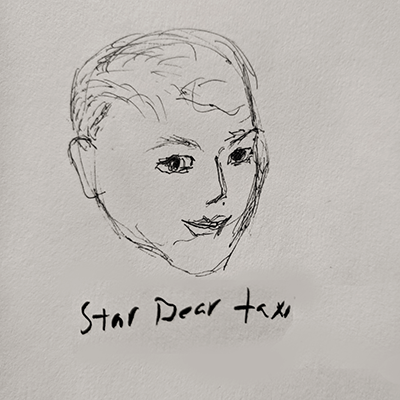 Star Dear taxi